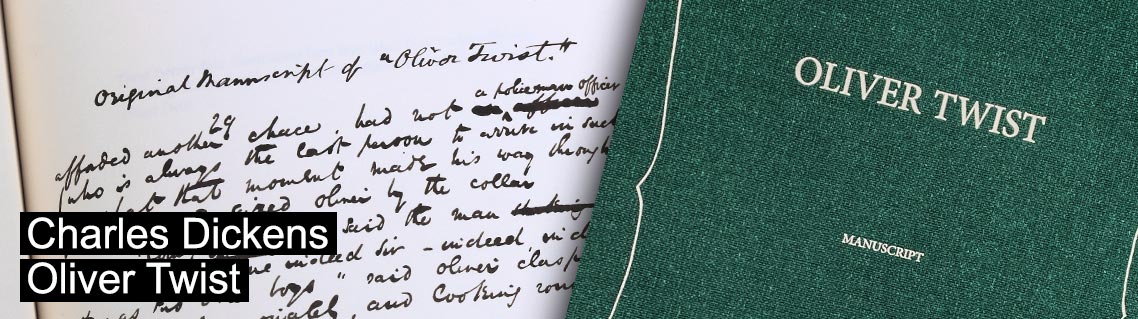 Original Manuscript of "Oliver Twist."
29
a policeman officer
afforded another chace, had not
(who is always the last person to arrive in such
that moment made his way through
seized oliver by the collar
said the man
indeed sir - indeed, ind
boys" said oliver clasp
and looking roun
Charles Dickens
Oliver Twist
OLIVER TWIST
MANUSCRIPT